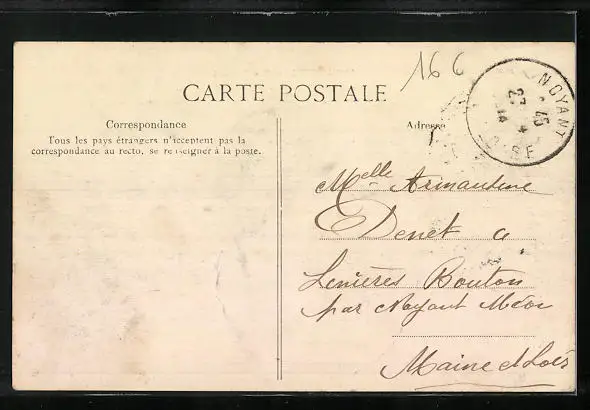 16 C
NOYANT
27
4
14
CARTE POSTALE
Correspondance
Tous les pays étrangers n'acceptent pas la
correspondance au recto, se renseigner à la poste.
Adresse
Melle Armandine
Denet a
Lenières Bouton
par Noyant Méon
Maine et Loire